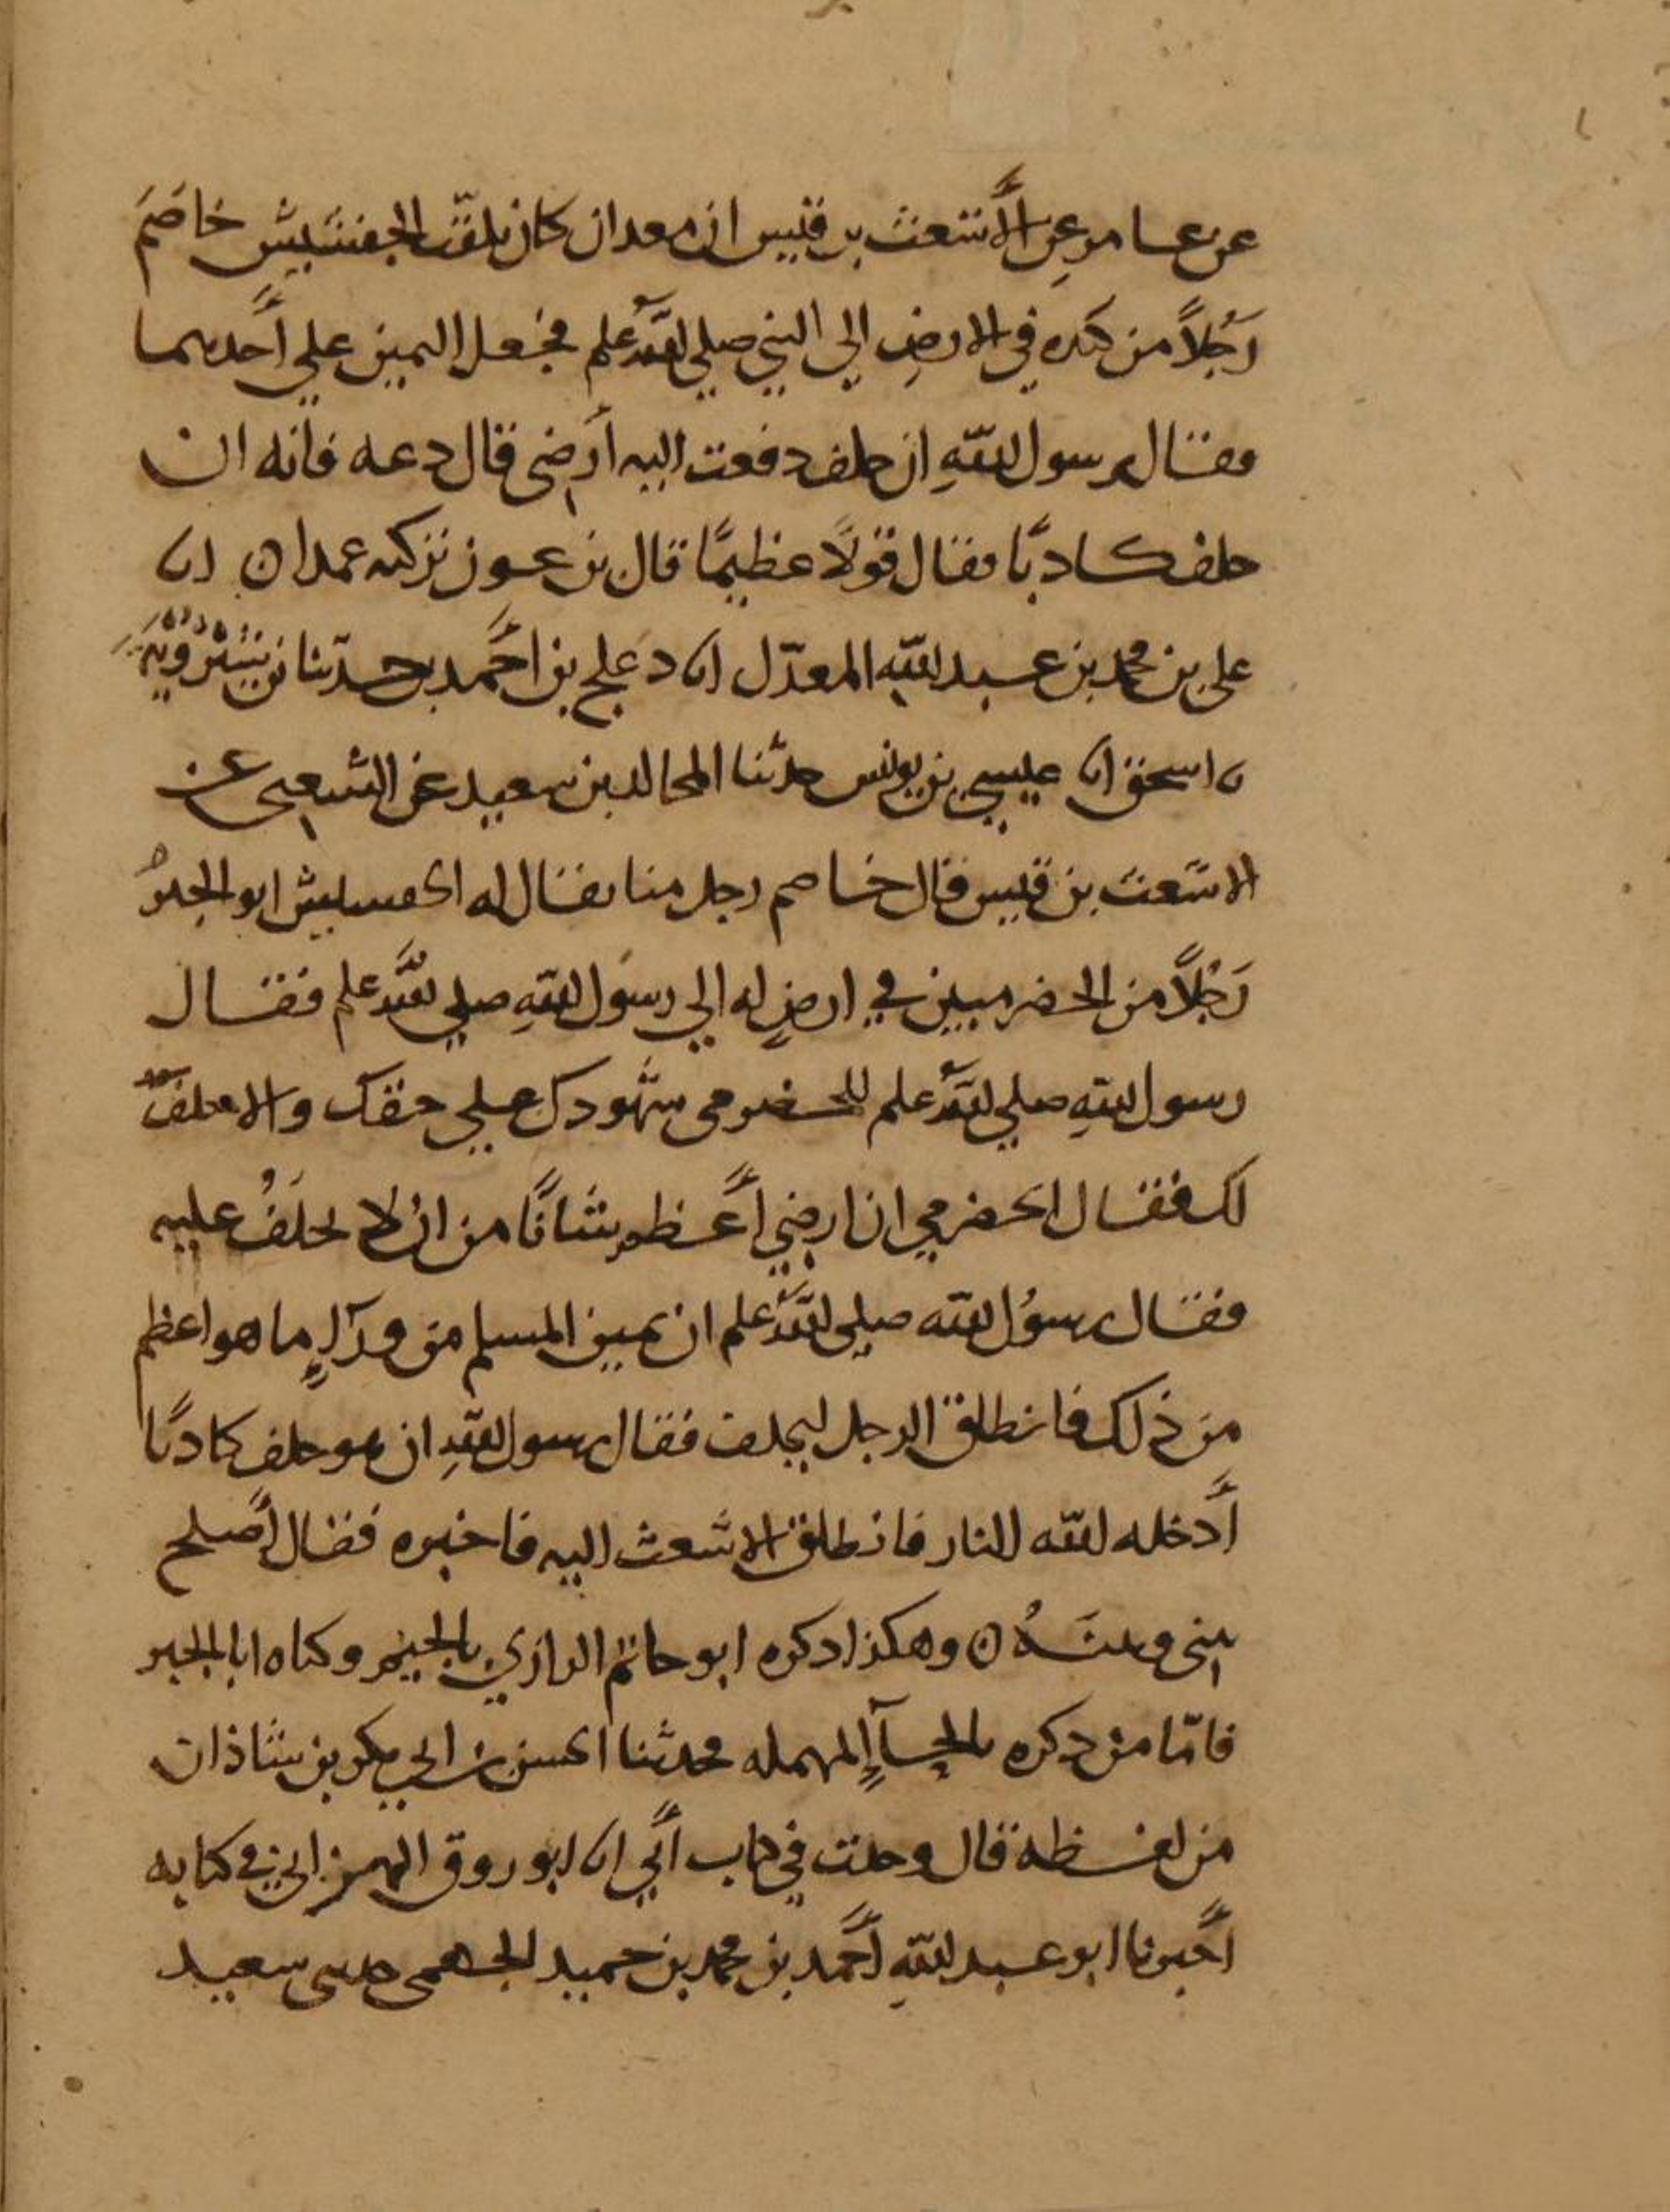 عن عامر عن الأشعث بن قيس ان معدان كان يلقّب الجفشيش خاصَمَ
رَجُلاً من كنده في الارضِ الي النبي صلي الله علم فجعل اليمين علي أحدهما
فقال يرسول اللهِ ان حلف دفعت اليه أرضى قال دعه فانه ان
حلف كاذبًا فقال قولًا عظيمًا قال بن عون تركه عمدا ن انا
على بن محمد بن عبد الله المعدّل انا دعلج بن احمد بن حدثنا بن شيرويه
نا اسحق انا عيسي بن يونس حدثنا المجالد بن سعيد عن الشعبى عن
الاشعث بن قيس قال خاصم رجل منا يقال له الحفشيش ابو الخير
رَجُلاً من الحضرميين في ارضٍ له الي رسول اللهِ صلي الله علم فقال
رسول اللهِ صلي الله علم للحضرمى شهودك علي حقك والا حلف
لك فقال الحضرمي ان ارضي أعظم شأنًا من ان لا يحلفُ عليه
فقال رسوُل الله صلي الله علم ان يمين المسلم من ورآءِ ما هو اعظم
من ذلك فانطلق الرجل ليحلف فقال رسول اللهِ ان هو حلف كاذبًا
أدخله الله النار فانطلق الاشعث اليه فاخبره فقال أصلح
بينى وبينَهُ ن وهكذا ذكره ابو حاتم الرازي بالجيم وكناه ابا الخير
فامّا من ذكره بالحآءِ المهمله فحدثنا الحسن بن ابي بكر بن شاذان
من لفظه قال وجدت في كتاب أبي انا ابو روق الهزاني في كتابه
أخبرنا ابو عبد اللهِ أحمد بن محمد بن حميد الجهمى حدثنى سعيد